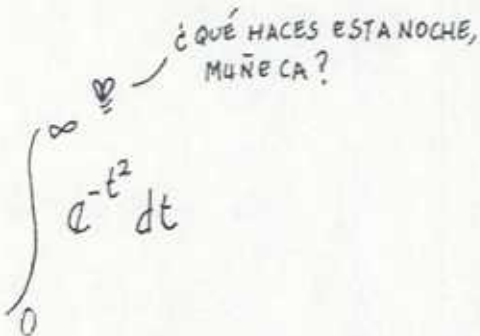 ¿QUÉ HACES ESTA NOCHE,
MUÑECA?
∞
∫ e^{-t^2} dt
0